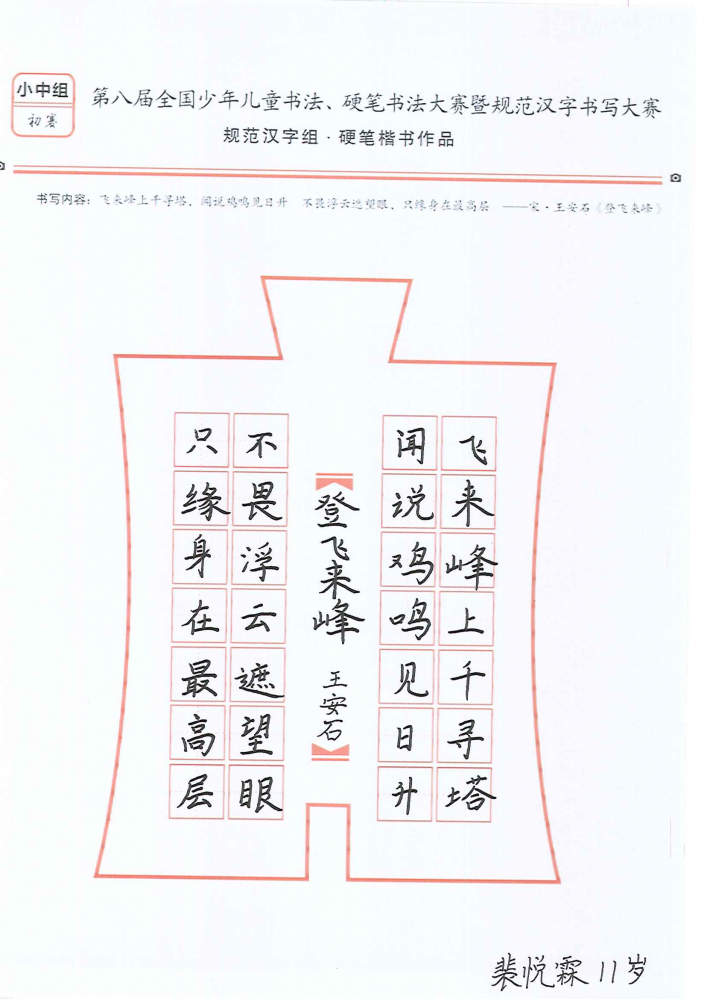 小中组
初赛
第八届全国少年儿童书法、硬笔书法大赛暨规范汉字书写大赛
规范汉字组·硬笔楷书作品
书写内容：飞来峰上千寻塔，闻说鸡鸣见日升 不畏浮云遮望眼，只缘身在最高层 ——宋·王安石《登飞来峰》
飞来峰上千寻塔
闻说鸡鸣见日升
登飞来峰 王安石
不畏浮云遮望眼
只缘身在最高层
裴悦霖 11岁